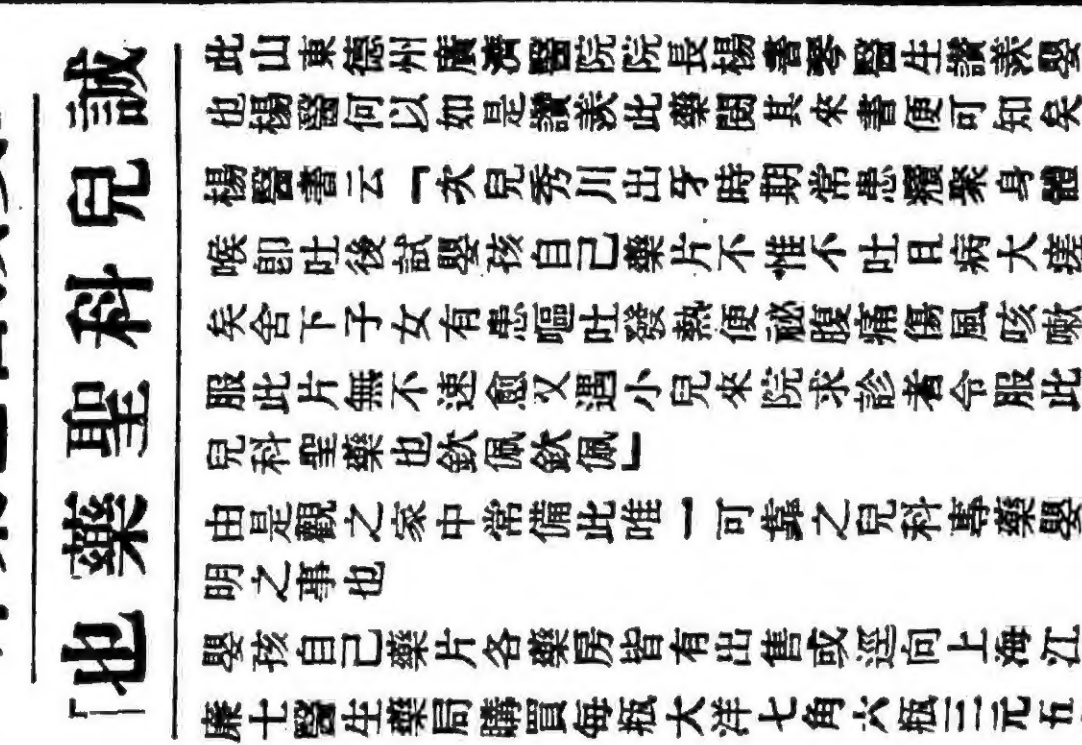 誠兒科聖藥也」
此山東德州廣濟醫院院長楊書琴醫生讚美嬰
也楊醫何以如是讚美此藥閱其來書便可知矣
楊醫書云「次兒秀川出牙時期常患癪聚身體
喉卽吐後試嬰孩自己藥片不惟不吐且病大瘥
矣舍下子女有患嘔吐發熱便祕腹痛傷風咳嗽
服此片無不速愈又遇小兒來院求診者令服此
兒科聖藥也欽佩欽佩」
由是觀之家中常備此唯一可靠之兒科專藥嬰
明之事也
嬰孩自己藥片各藥房皆有出售或逕向上海江
廉士醫生藥局購買每瓶大洋七角六瓶三元五